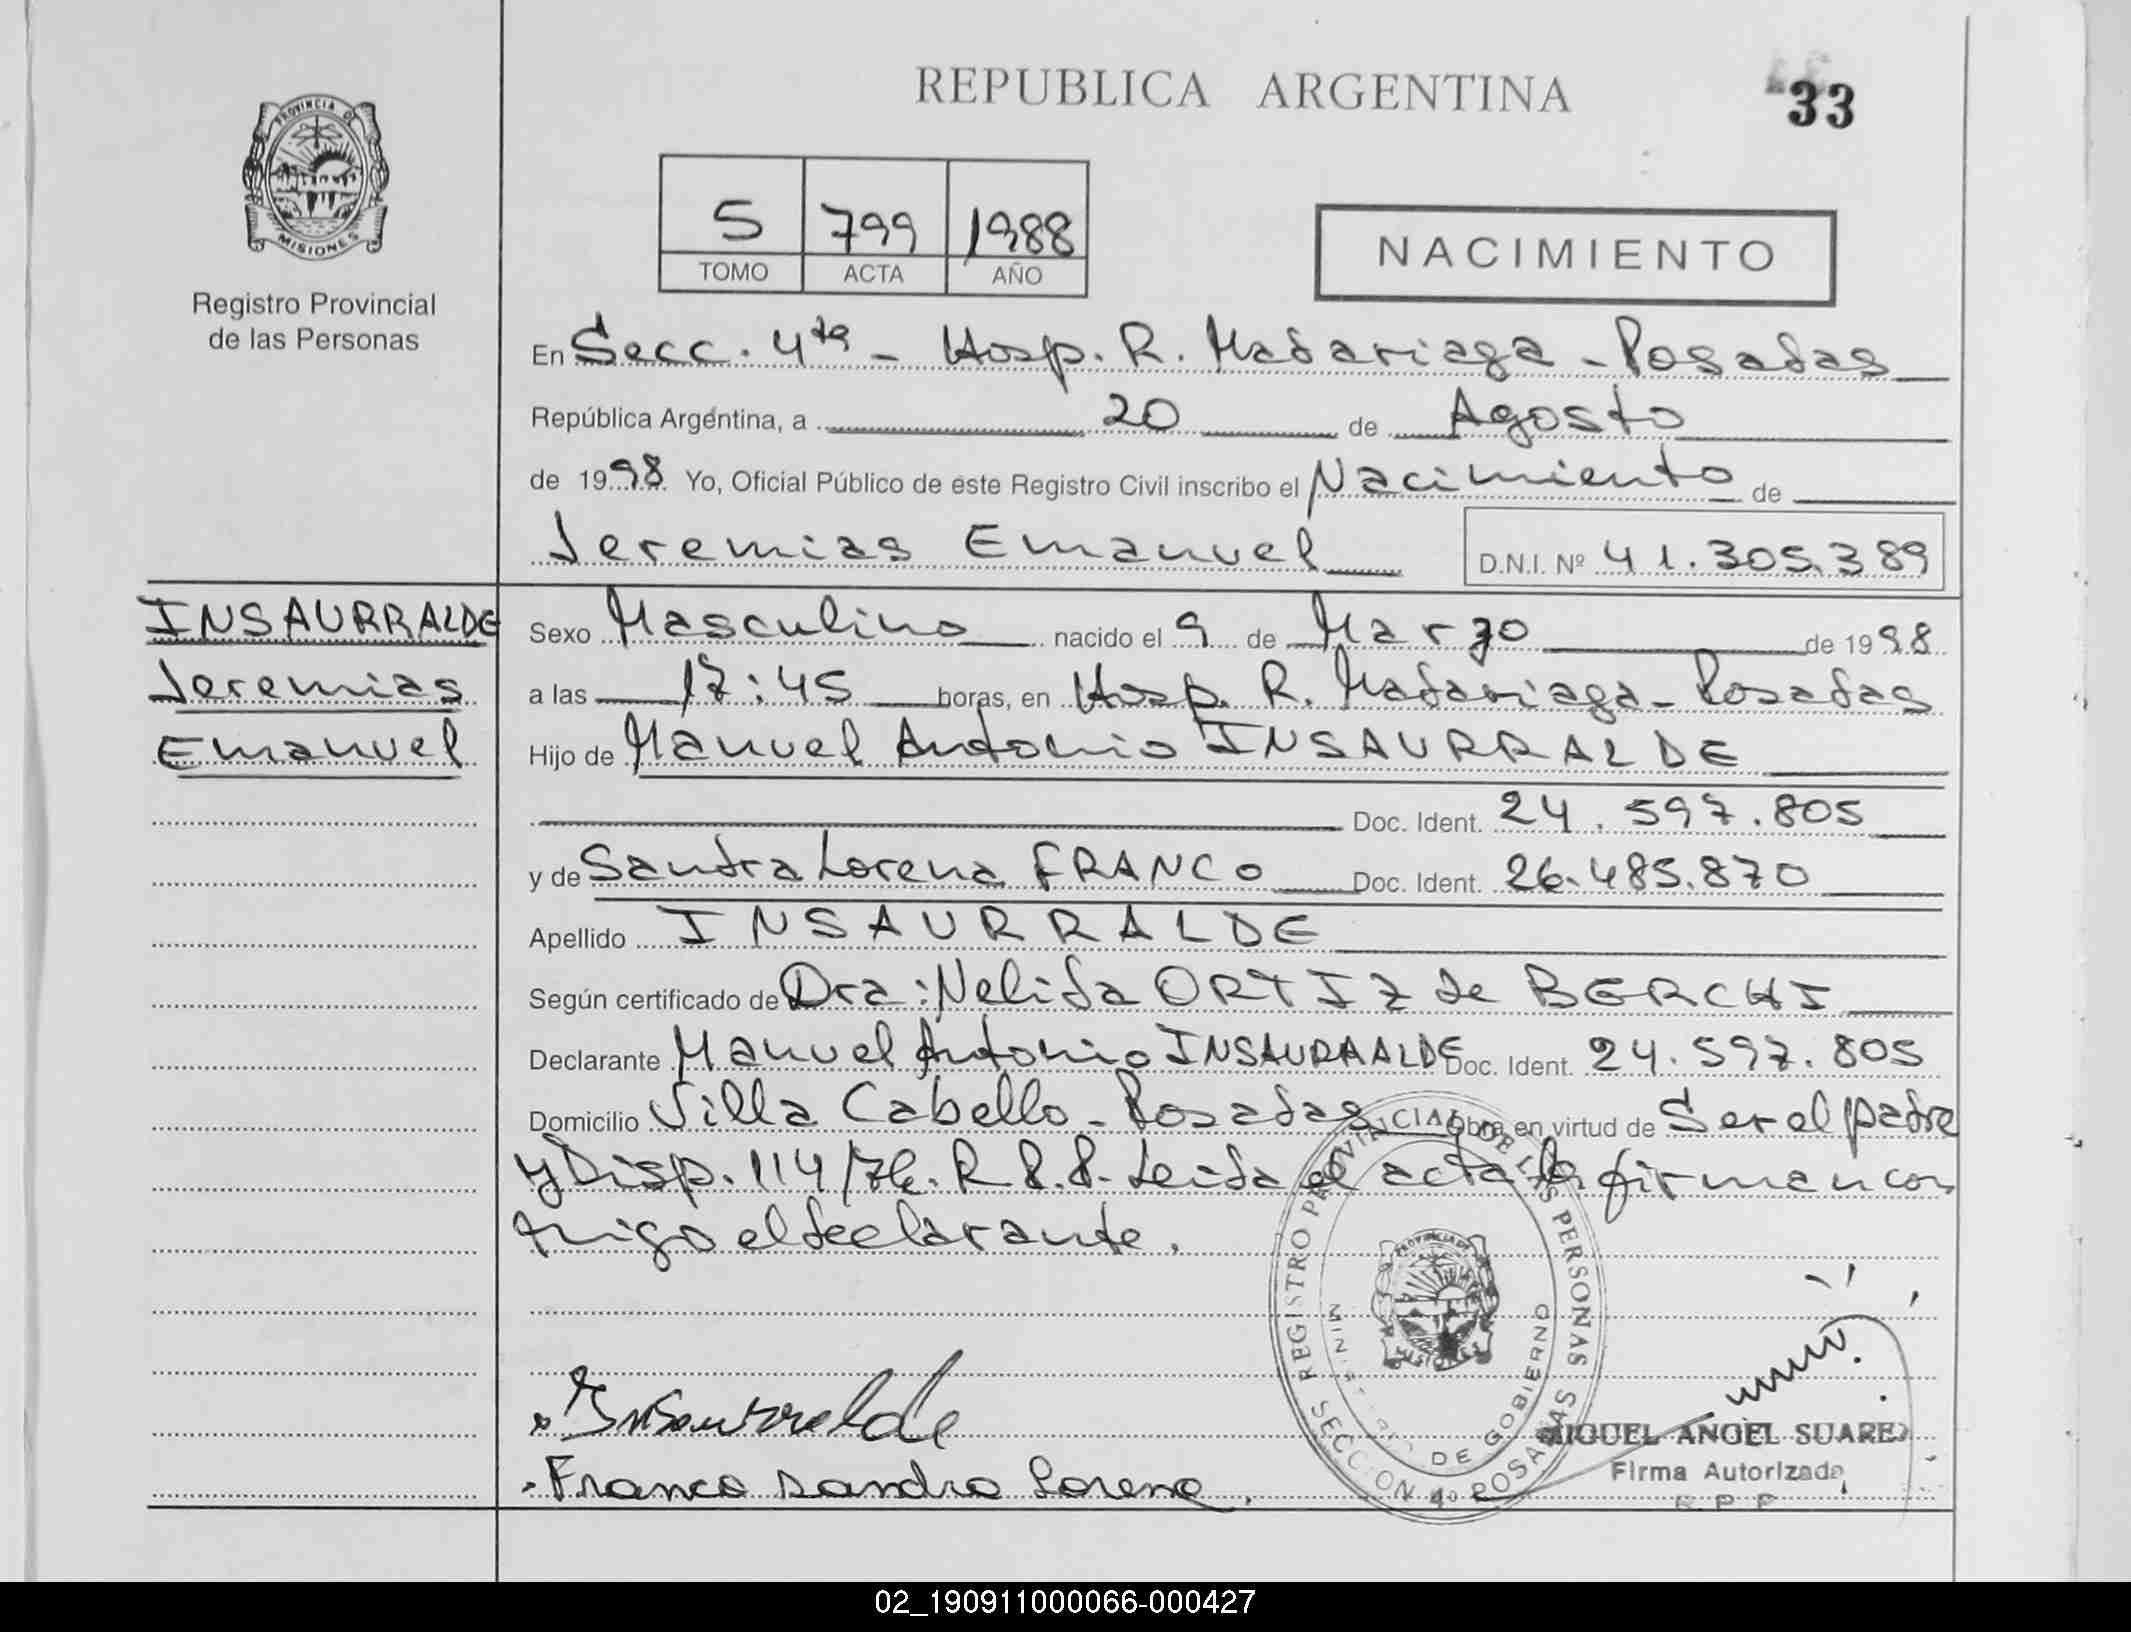 REPUBLICA ARGENTINA
33
PROVINCIA DE
MISIONES
Registro Provincial
de las Personas
5 799 1988
TOMO ACTA AÑO
NACIMIENTO
En Secc. 4ta - Hosp. R. Madariaga - Posadas
República Argentina, a 20 de Agosto
de 1998 Yo, Oficial Público de este Registro Civil inscribo el Nacimiento de
Jeremias Emanuel D.N.I. Nº 41.305.389
INSAURRALDE
Jeremias
Emanuel
Sexo Masculino nacido el 9 de Marzo de 1998
a las 17:45 horas, en Hosp. R. Madariaga - Posadas
Hijo de Manuel Antonio INSAURRALDE
Doc. Ident. 24.597.805
y de Sandra Lorena FRANCO Doc. Ident. 26.485.870
Apellido INSAURRALDE
Según certificado de Dra: Nelida ORTIZ de BERCHI
Declarante Manuel Antonio INSAURRALDE Doc. Ident. 24.597.805
Domicilio Villa Cabello - Posadas Obra en virtud de Ser el padre
y Disp. 114/ Leida el acta la firman con
migo el declarante.
REGISTRO PROVINCIAL DE LAS PERSONAS
MINISTERIO DE GOBIERNO
SECCION 4º POSADAS
Insaurralde
Franco Sandra Lorena
MIGUEL ANGEL SUAREZ
Firma Autorizada
R P P
02_190911000066-000427